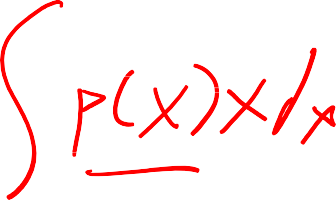 ∫ p(x) x dx